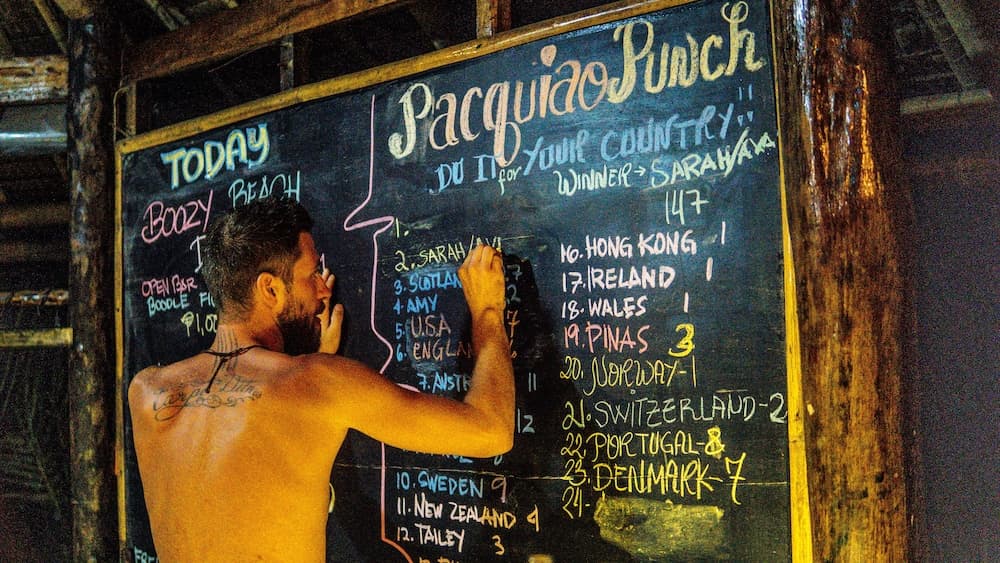 TODAY
BOOZY BEACH
OPEN BAR
BOODLE
Pacquiao Punch
DO IT for YOUR COUNTRY!!
WINNER → SARAH/AVA
147
1.
2. SARAH/
3. SCOTLAN 7
4. AMY 2
5. U.S.A 7
6. ENGLAN
7. AUST 11
12
10. SWEDEN 9
11. NEW ZEALAND 4
12. TAILEY 3
16. HONG KONG 1
17. IRELAND 1
18. WALES 1
19. PINAS 3
20. NORWAY-1
21. SWITZERLAND-2
22. PORTUGAL-8
23. DENMARK-7
24-